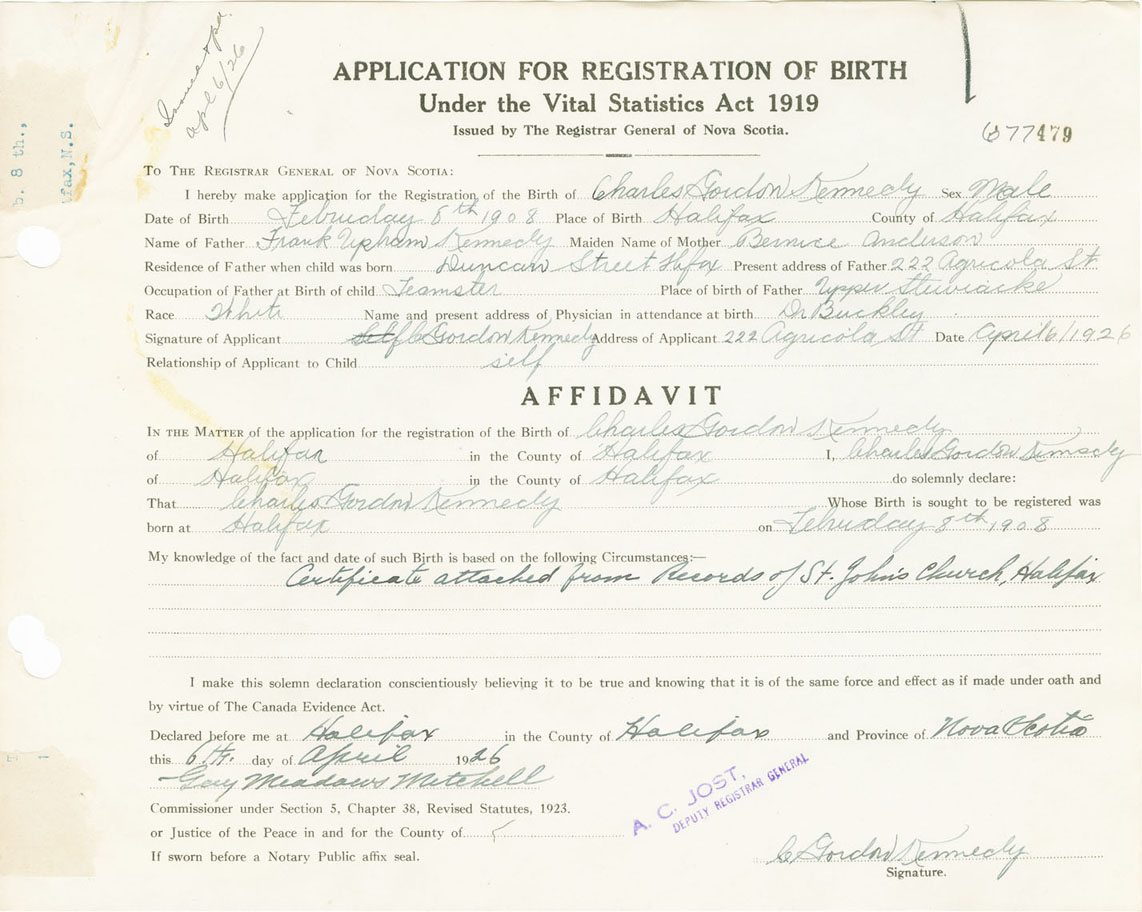 apl 6/26
b. 8 th.,
ifax, N.S.
APPLICATION FOR REGISTRATION OF BIRTH
Under the Vital Statistics Act 1919
Issued by The Registrar General of Nova Scotia.
677479
To The Registrar General of Nova Scotia:
I hereby make application for the Registration of the Birth of Charles Gordon Kennedy Sex Male
Date of Birth Februday 8th 1908 Place of Birth Halifax County of Halifax
Name of Father Frank Upham Kennedy Maiden Name of Mother Bernice Anderson
Residence of Father when child was born Duncan Street Hfax Present address of Father 222 Agricola St.
Occupation of Father at Birth of child Teamster Place of birth of Father Upper Stewiacke
Race White Name and present address of Physician in attendance at birth Dr Buckley
Signature of Applicant C Gordon Kennedy Address of Applicant 222 Agricola St Date April 6/1926
Relationship of Applicant to Child self
AFFIDAVIT
In the Matter of the application for the registration of the Birth of Charles Gordon Kennedy
of Halifax in the County of Halifax I, Charles Gordon Kennedy
of Halifax in the County of Halifax do solemnly declare:
That Charles Gordon Kennedy Whose Birth is sought to be registered was
born at Halifax on Februday 8th, 1908
My knowledge of the fact and date of such Birth is based on the following Circumstances:—
Certificate attached from Records of St. John's Church, Halifax
I make this solemn declaration conscientiously believing it to be true and knowing that it is of the same force and effect as if made under oath and
by virtue of The Canada Evidence Act.
Declared before me at Halifax in the County of Halifax and Province of Nova Scotia
this 6th. day of April 1926
Gay Meadows Mitchell
Commissioner under Section 5, Chapter 38, Revised Statutes, 1923.
or Justice of the Peace in and for the County of
If sworn before a Notary Public affix seal.
A. C. JOST,
DEPUTY REGISTRAR GENERAL
C Gordon Kennedy
Signature.